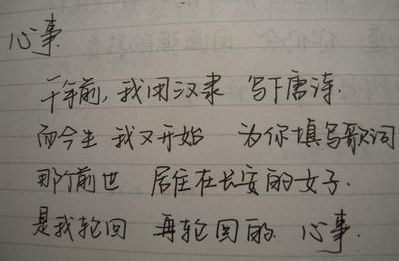 心事
千年前,我用汉隶 写下唐诗.
而今生 我又开始 为你填写歌词
那前世 居住在长安的女子.
是我轮回 再轮回的 心事.